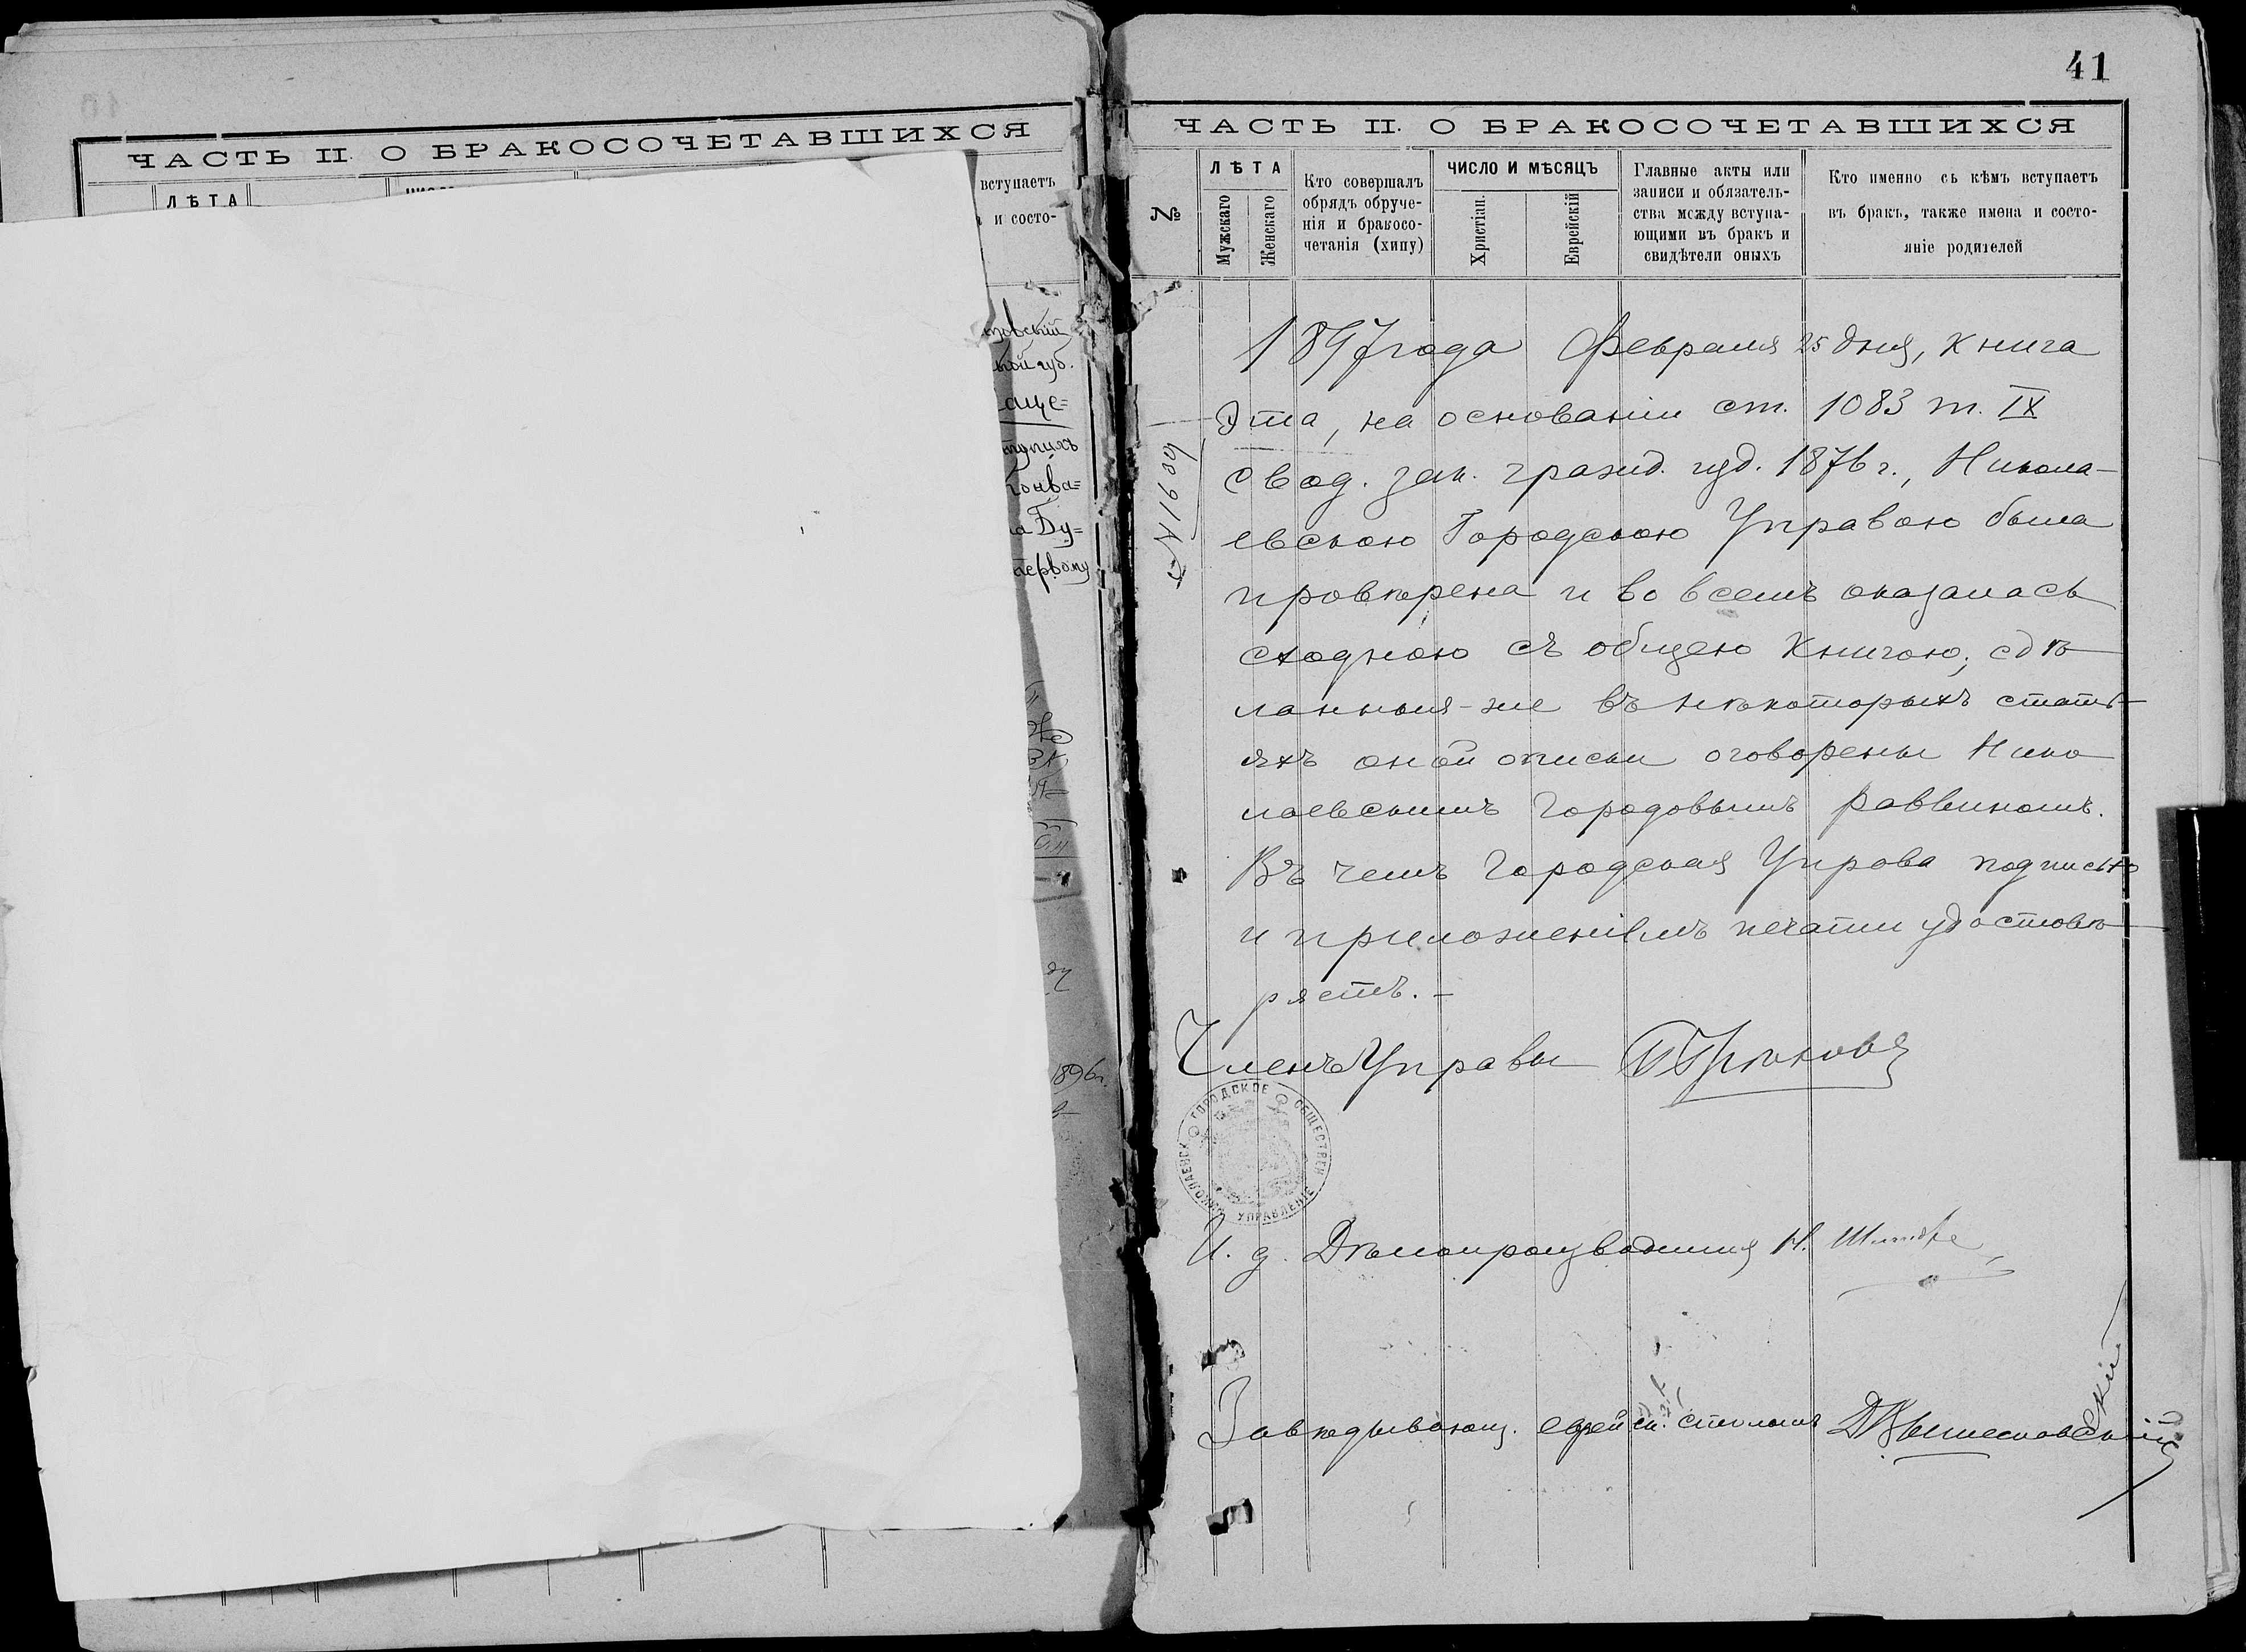 ЧАСТЬ II. О БРАКОСОЧЕТАВШИХСЯ
ЛѢТА
вступаетъ
и состо-
ной губ.
аще=
а Бу=
первому
1896г.
41
ЧАСТЬ II. О БРАКОСОЧЕТАВШИХСЯ
№
ЛѢТА
Мужскаго
Женскаго
Кто совершалъ
обрядъ обруче-
нія и бракосо-
четанія (хипу)
ЧИСЛО И МѢСЯЦЪ
Христіан.
Еврейскій
Главные акты или
записи и обязатель-
ства между вступа-
ющими въ бракъ и
свидѣтели оныхъ
Кто именно съ кѣмъ вступаетъ
въ бракъ, также имена и состо-
яніе родителей
1897 года Февраля 25 дня, книга
эта, на основаніи ст. 1083 т. IX
свод. зак. гражд. изд. 1876 г., Никола-
евскою Городскою Управою была
провѣрена и во всемъ оказалась
сходною съ общею книгою; сдѣ
ланныя-же въ нѣкоторыхъ стать-
яхъ оной описки оговорены Нико
лаевскимъ Городовымъ Раввиномъ.
Въ чемъ Городская Управа подписью
и приложеніемъ печати удостовѣ-
ряетъ. -
№ 1609
Членъ Управы
НИКОЛАЕВСК. ГОРОДСКОЕ ОБЩЕСТВЕН. УПРАВЛЕНІЕ
И. д. Дѣлопроизводителя Н.
Завѣдывающ. еврейск. столомъ